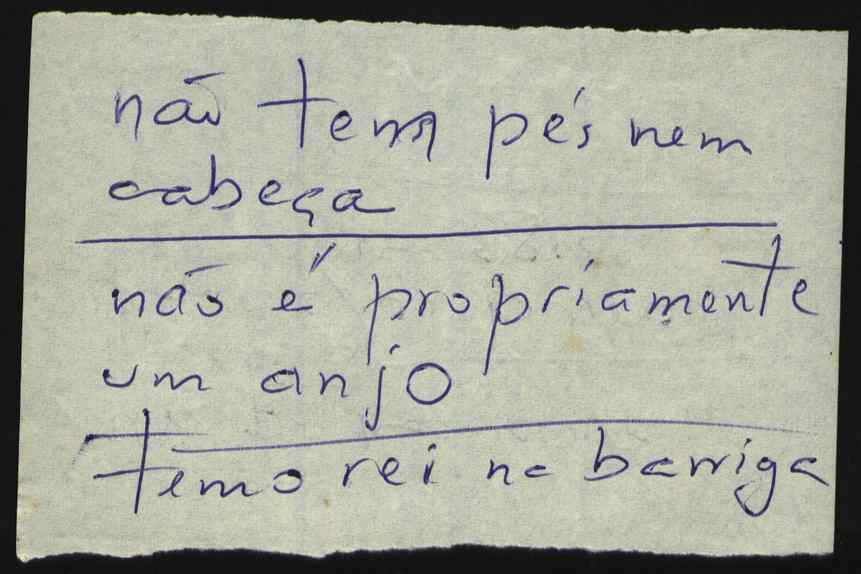 não tem pés nem
cabeça
não é propriamente
um anjo
tem o rei na barriga